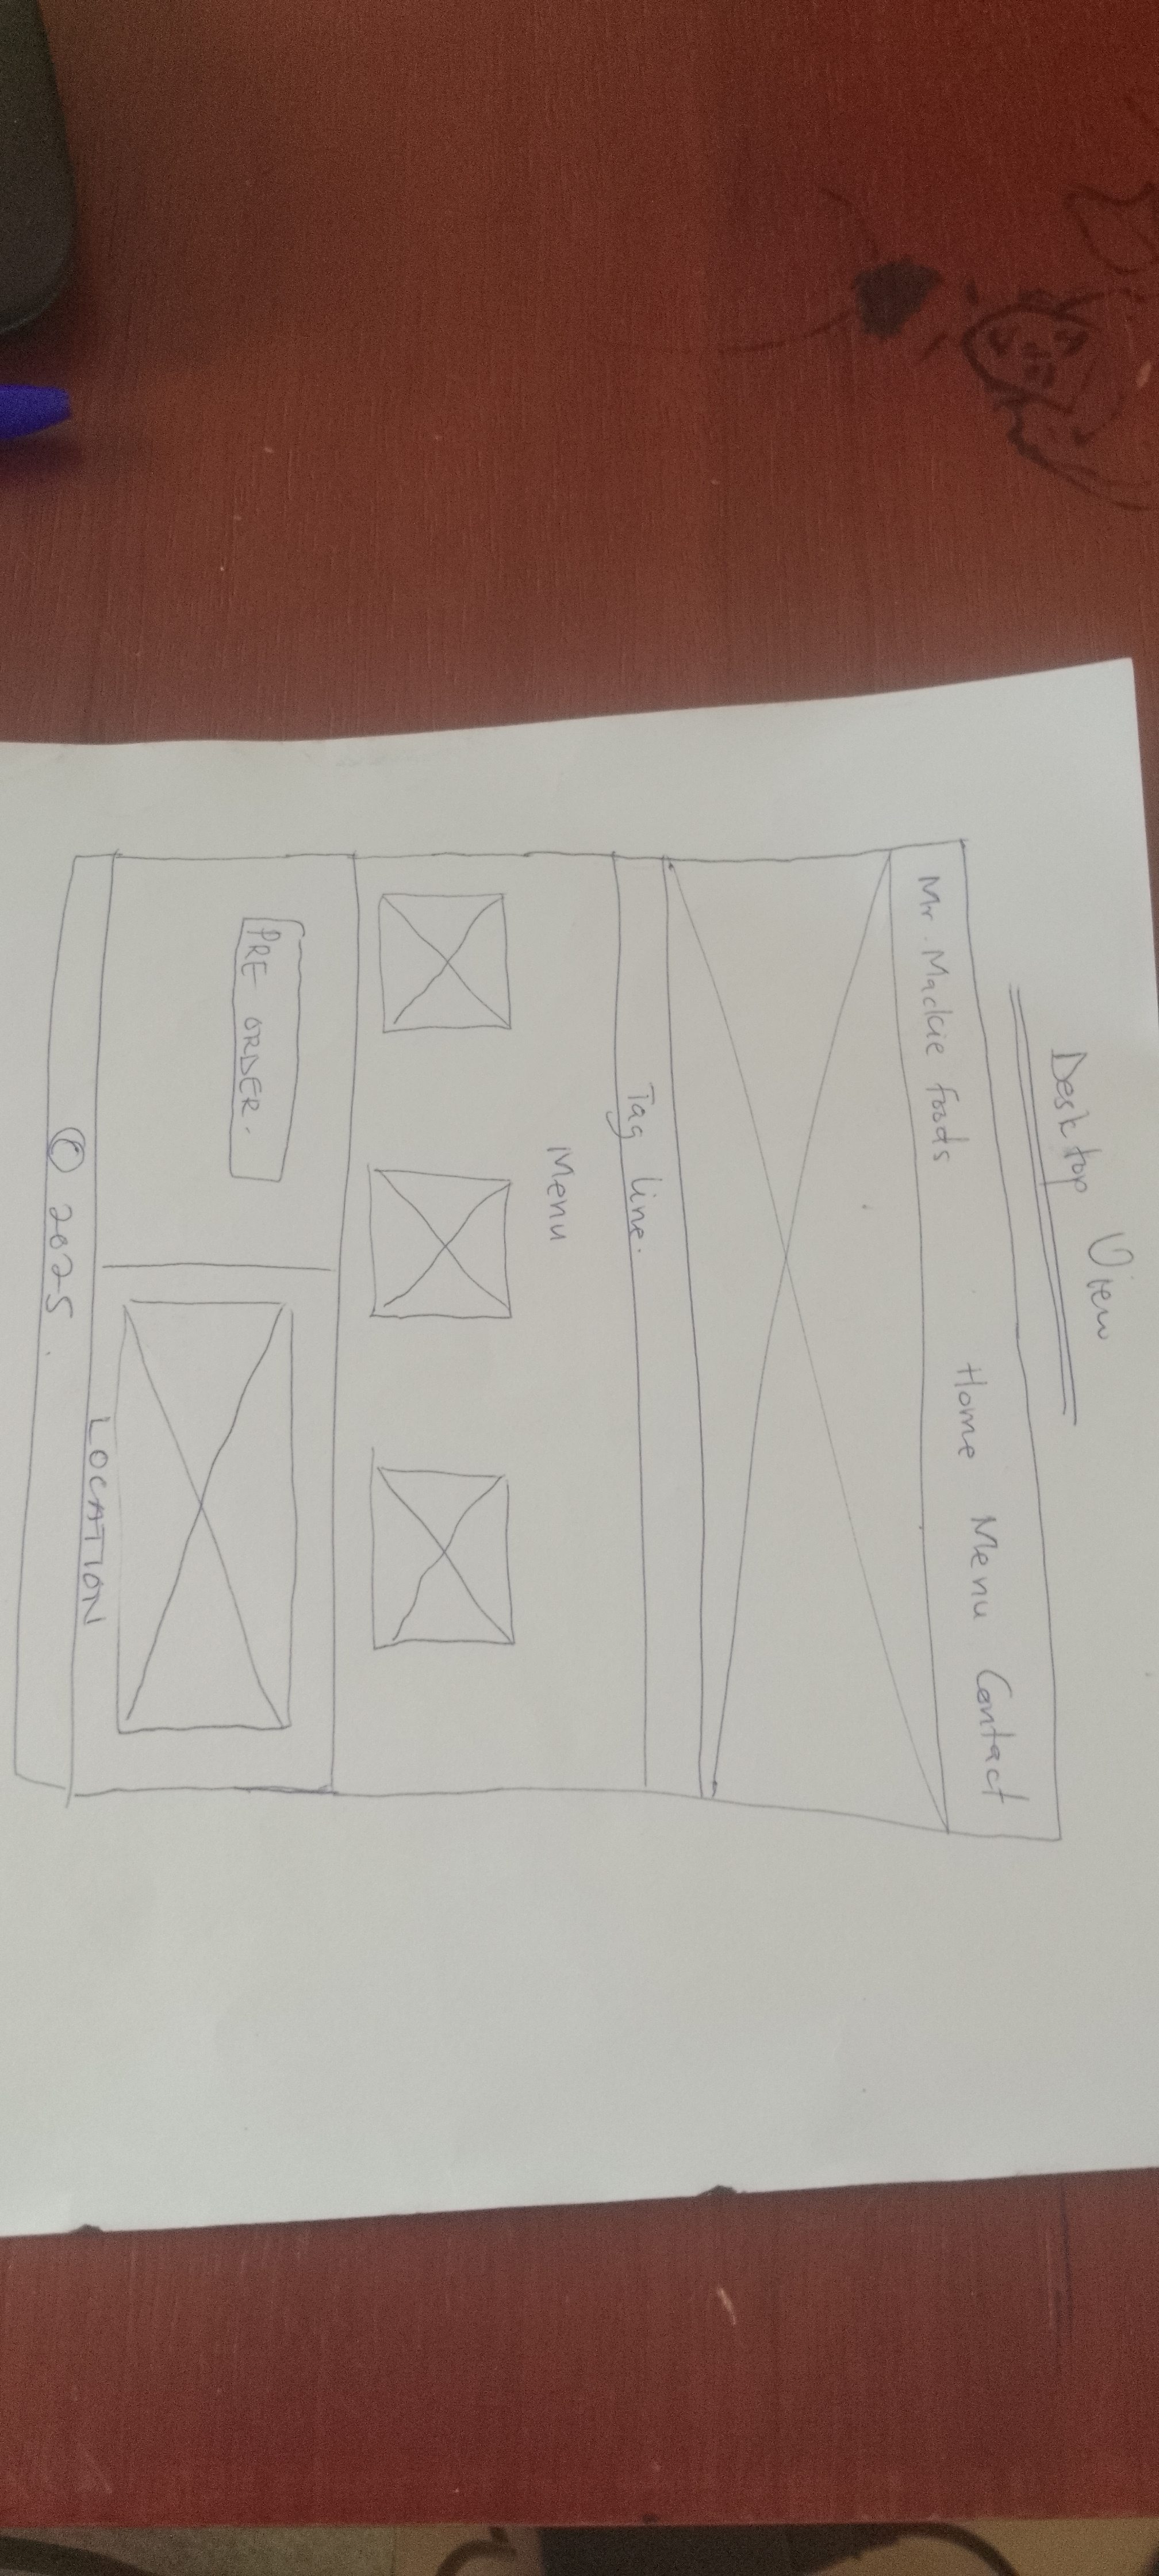 Desktop View
Mr. Mackie foods Home Menu Contact
Tag line.
Menu
PRE ORDER.
LOCATION
© 2025.